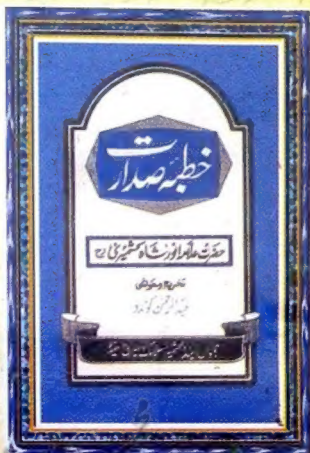 خطبۂ صدارت
حضرت علامہ انور شاہ کشمیریؒ
تخریج وحواشی
عبدالرحمن کوندو